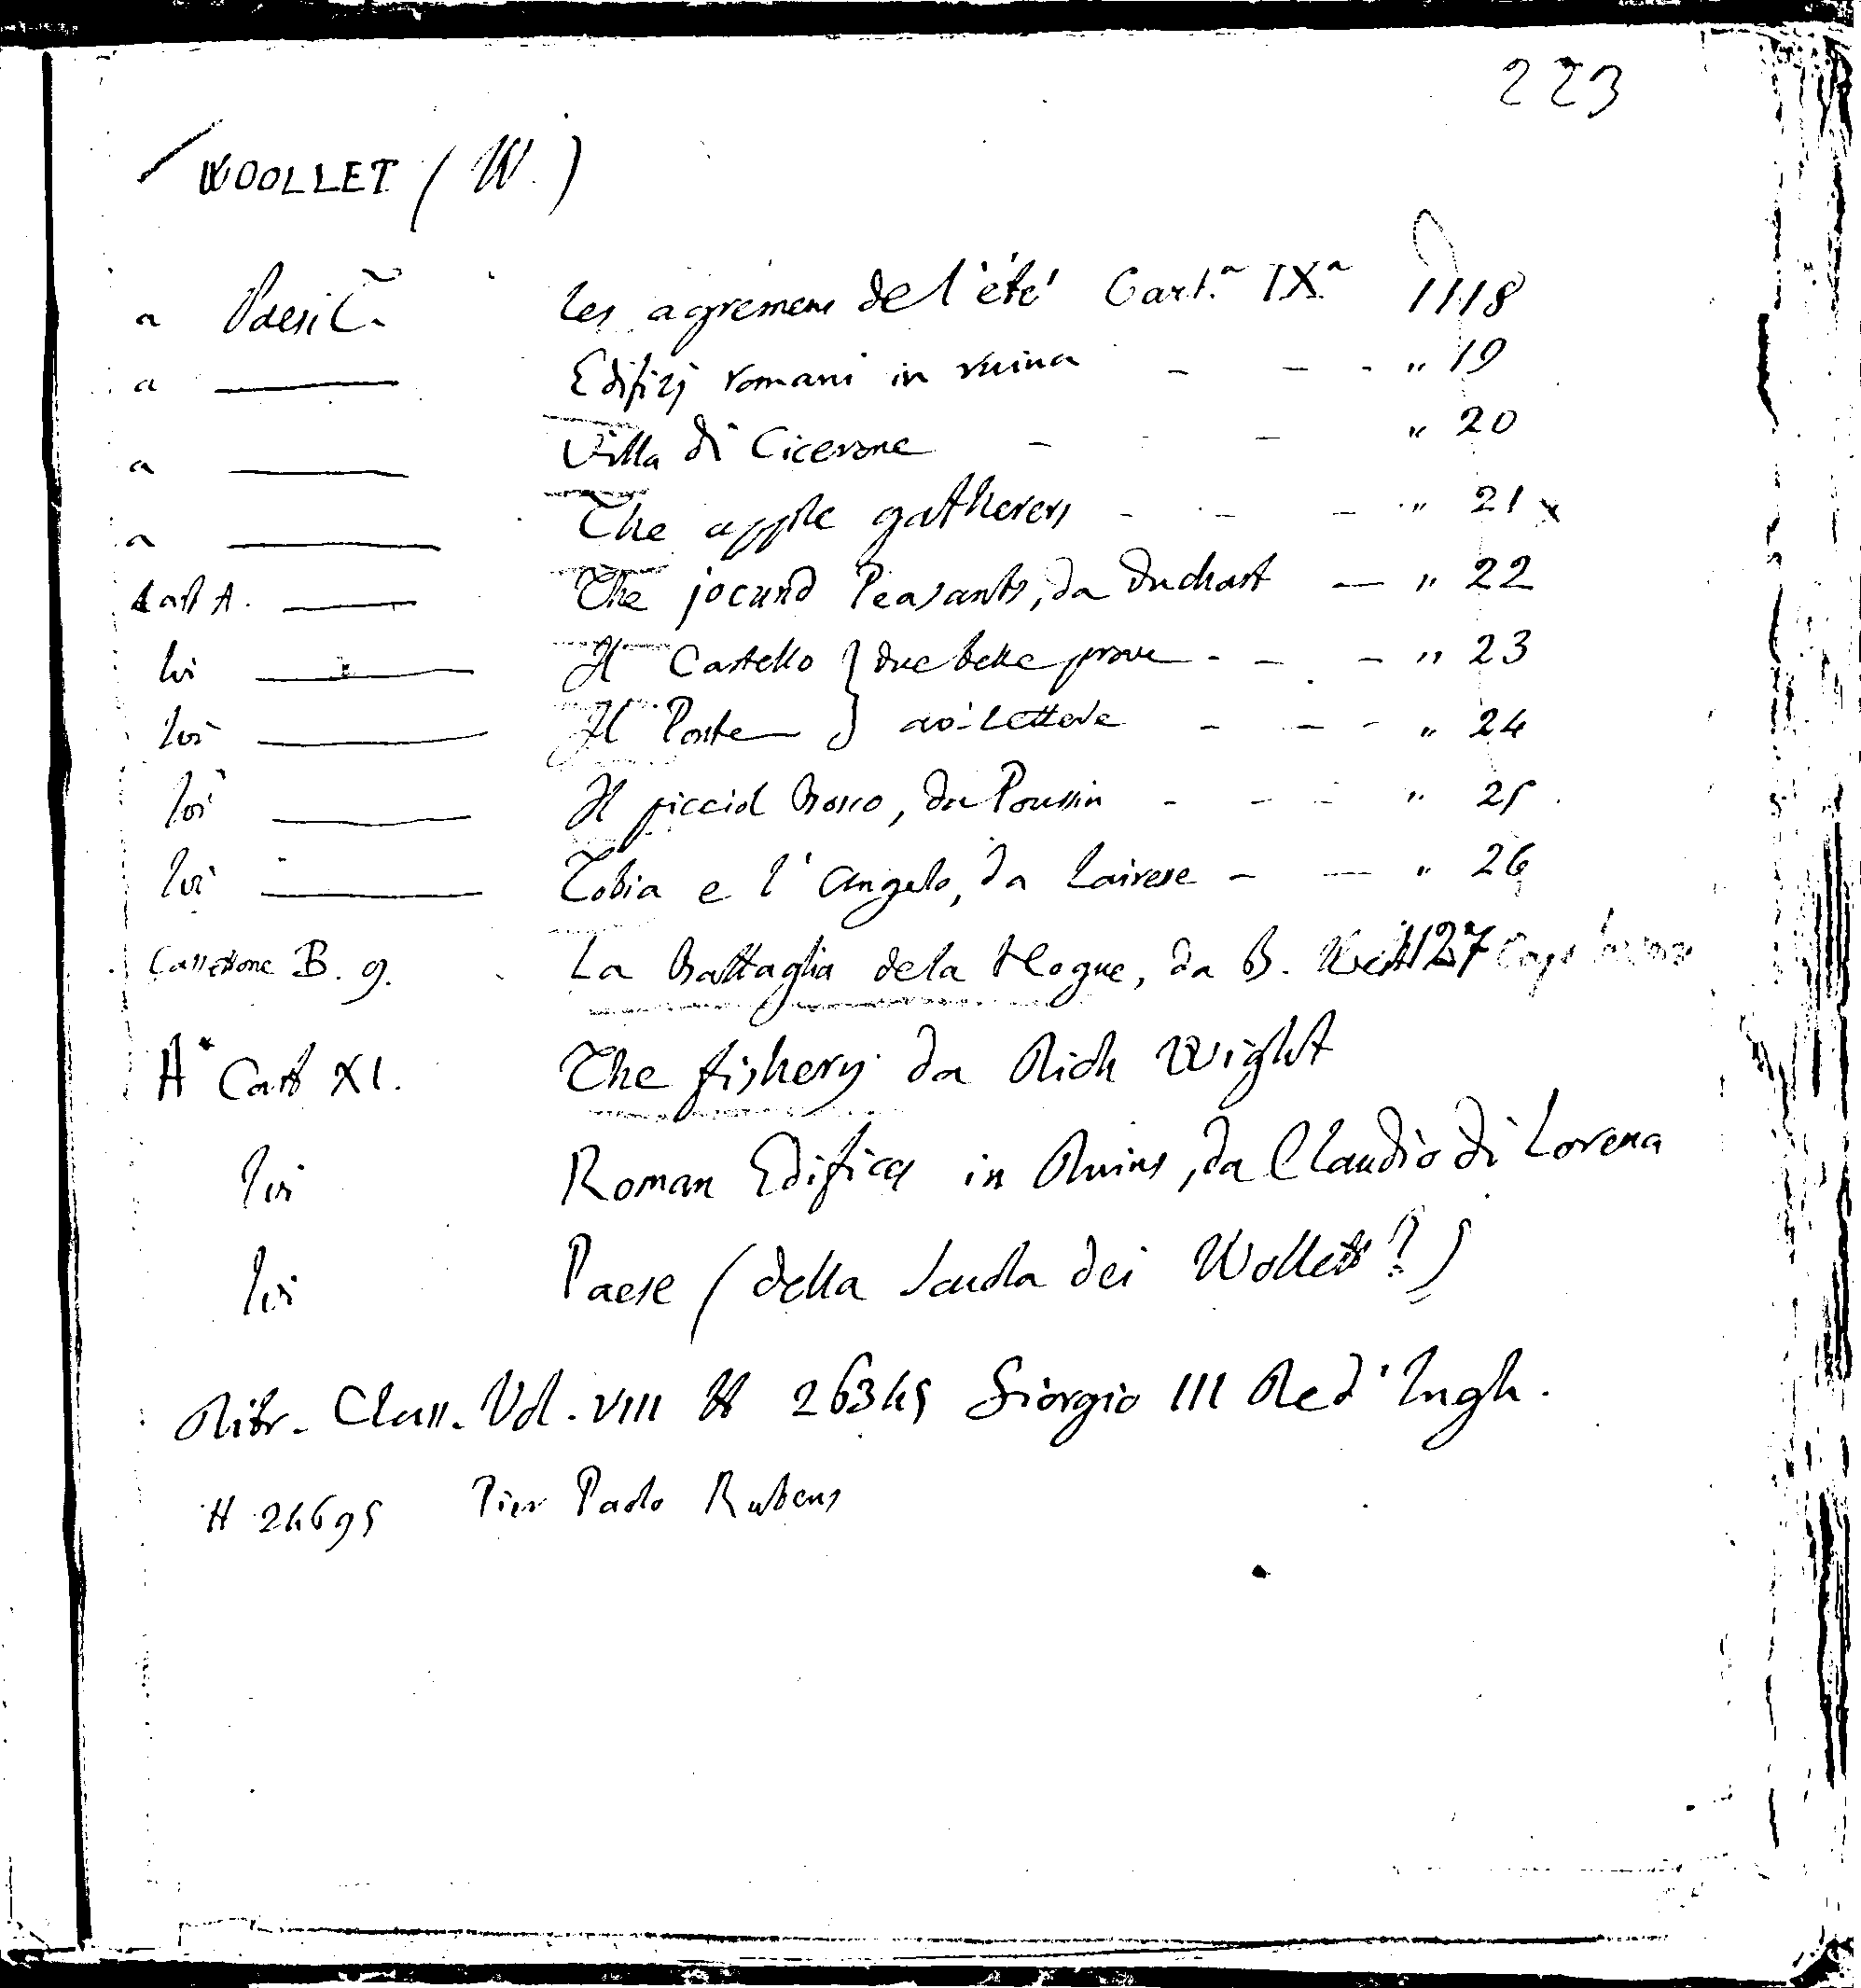 223
WOOLLET (W.)
a Paesi C. Les agremens de l'été Cart.a IX.a 1118
a — Edifizj romani in ruina - - - " 19
a — Villa di Cicerone - - " 20
a — The apple gatherers - - - " 21 x
Cart A. — The jocund Peasants, da Duchart — " 22
Ivi — Il Castello } due belle prove - - - " 23
Ivi — Il Ponte } av. lettere - - - " 24
Ivi — Il picciol bosco, da Poussin - - - " 25
Ivi — Tobia e l'Angelo, da Lairesse - — " 26
Cassettone B. 9. La Battaglia de la Hogue, da B. West 1127
H* Cart XI. The fishery da Rich Wright
Ivi Roman Edifices in Ruins, da Claudio di Lorena
Ivi Paese (della scuola dei Wollett?)
Ritr. Class. Vol. VIII H 26345 Giorgio III Re d'Ingh.
H 24695 Pier Paolo Rubens